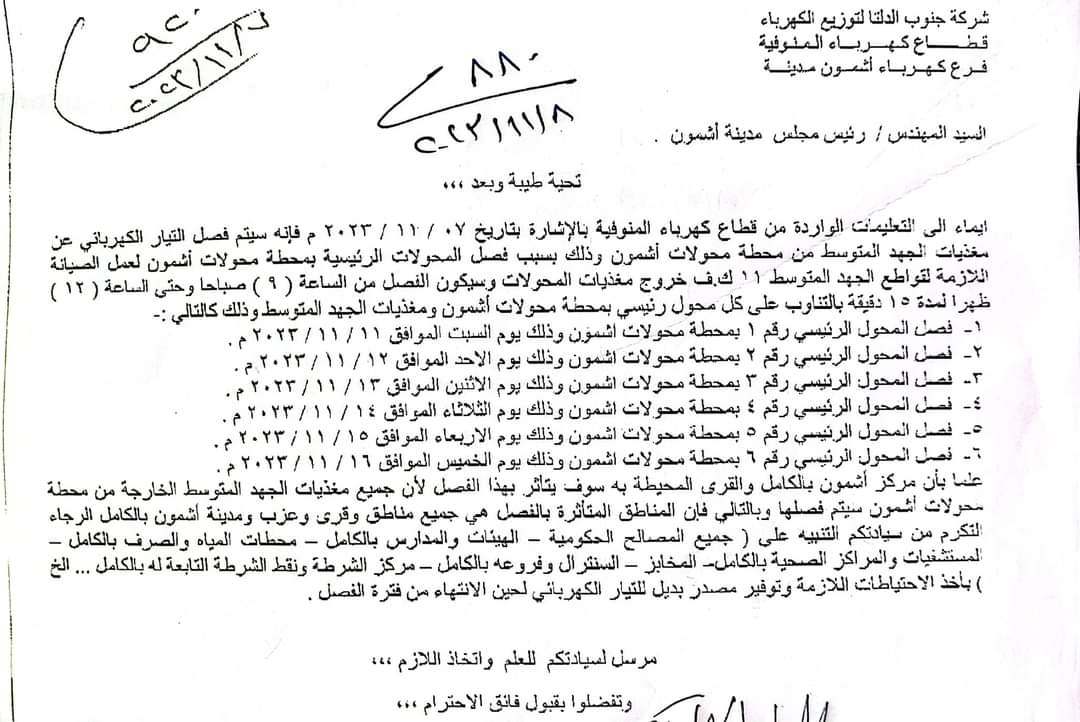 شركة جنوب الدلتا لتوزيع الكهرباء
قطـــاع كهـربـاء المنوفية
فـرع كهـربـاء أشمـون مدينـة
٩٢٠
٢٠٢٣/١١/
٨٨٠
٢٠٢٣/١١/٨
السيد المهندس / رئيس مجلس مدينة أشمون .
تحية طيبة وبعد ،،،
ايماء الى التعليمات الواردة من قطاع كهرباء المنوفية بالإشارة بتاريخ ٠٧ / ١١ / ٢٠٢٣ م فإنه سيتم فصل التيار الكهربائي عن
مغذيات الجهد المتوسط من محطة محولات أشمون وذلك بسبب فصل المحولات الرئيسية بمحطة محولات أشمون لعمل الصيانة
اللازمة لقواطع الجهد المتوسط ١١ ك.ف خروج مغذيات المحولات وسيكون الفصل من الساعة ( ٩ ) صباحا وحتى الساعة ( ١٢ )
ظهرا لمدة ١٥ دقيقة بالتناوب على كل محول رئيسي بمحطة محولات أشمون ومغذيات الجهد المتوسط وذلك كالتالي :-
١- فصل المحول الرئيسي رقم ١ بمحطة محولات اشمون وذلك يوم السبت الموافق ١١ / ١١ / ٢٠٢٣ م .
٢- فصل المحول الرئيسي رقم ٢ بمحطة محولات اشمون وذلك يوم الاحد الموافق ١٢ / ١١ / ٢٠٢٣ م .
٣- فصل المحول الرئيسي رقم ٣ بمحطة محولات اشمون وذلك يوم الاثنين الموافق ١٣ / ١١ / ٢٠٢٣ م .
٤- فصل المحول الرئيسي رقم ٤ بمحطة محولات اشمون وذلك يوم الثلاثاء الموافق ١٤ / ١١ / ٢٠٢٣ م .
٥- فصل المحول الرئيسي رقم ٥ بمحطة محولات اشمون وذلك يوم الاربعاء الموافق ١٥ / ١١ / ٢٠٢٣ م .
٦- فصل المحول الرئيسي رقم ٦ بمحطة محولات اشمون وذلك يوم الخميس الموافق ١٦ / ١١ / ٢٠٢٣ م .
علما بأن مركز أشمون بالكامل والقرى المحيطة به سوف يتأثر بهذا الفصل لأن جميع مغذيات الجهد المتوسط الخارجة من محطة
محولات أشمون سيتم فصلها وبالتالي فإن المناطق المتأثرة بالفصل هي جميع مناطق وقرى وعزب ومدينة أشمون بالكامل الرجاء
التكرم من سيادتكم التنبيه على ( جميع المصالح الحكومية – الهيئات والمدارس بالكامل – محطات المياه والصرف بالكامل –
المستشفيات والمراكز الصحية بالكامل– المخابز – السنترال وفروعه بالكامل – مركز الشرطة ونقط الشرطة التابعة له بالكامل ... الخ
) بأخذ الاحتياطات اللازمة وتوفير مصدر بديل للتيار الكهربائي لحين الانتهاء من فترة الفصل .
مرسل لسيادتكم للعلم واتخاذ اللازم ،،،
وتفضلوا بقبول فائق الاحترام ،،،